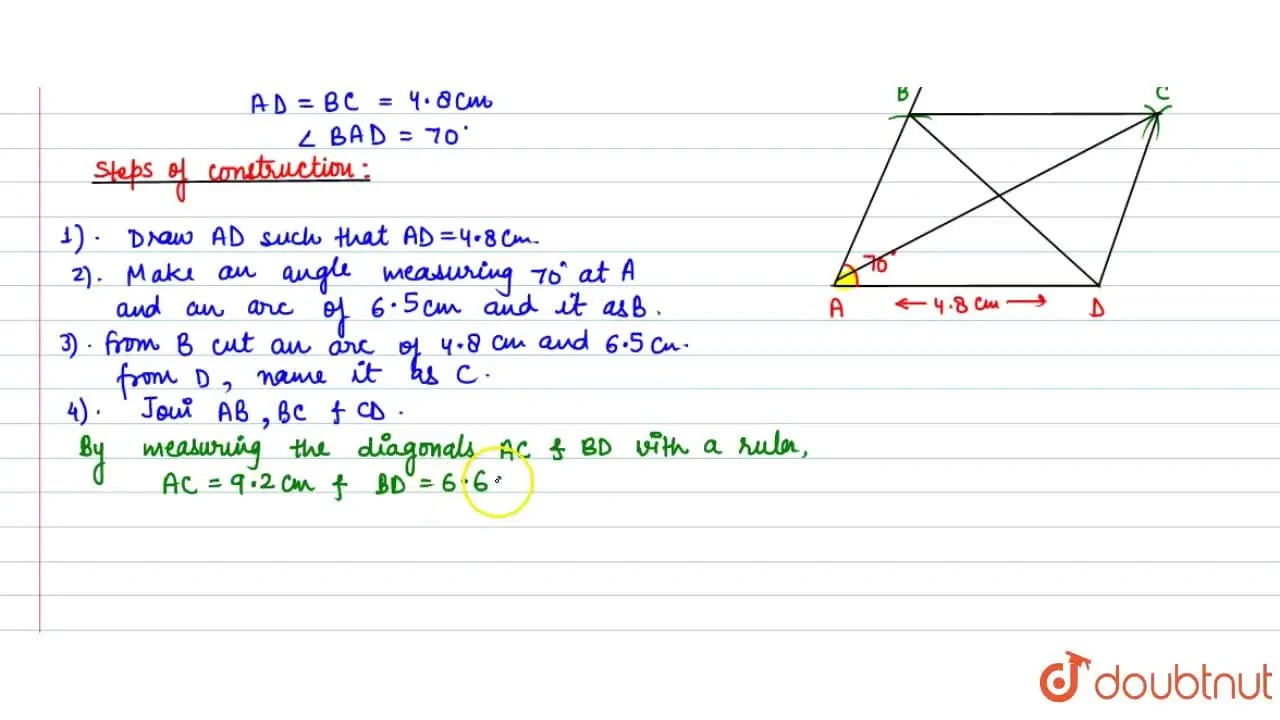 AD = BC = 4.8 cm
∠ BAD = 70°
Steps of construction:
1). Draw AD such that AD = 4.8 cm.
2). Make an angle measuring 70° at A
and an arc of 6.5 cm and it as B.
3). from B cut an arc of 4.8 cm and 6.5 cm.
from D, name it as C.
4). Join AB, BC & CD.
By measuring the diagonals AC & BD with a ruler,
AC = 9.2 cm & BD = 6.6
B C
70°
A ← 4.8 cm → D
doubtnut